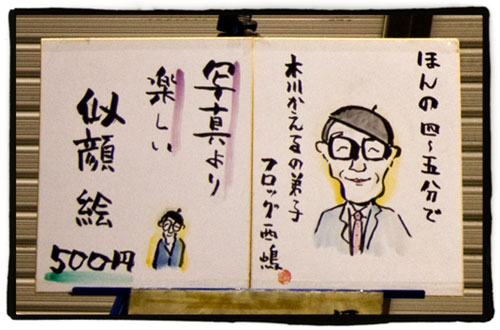 ほんの四〜五分で
木川かえるの弟子
フロッグ西嶋
写真より
楽しい
似顔絵
500円